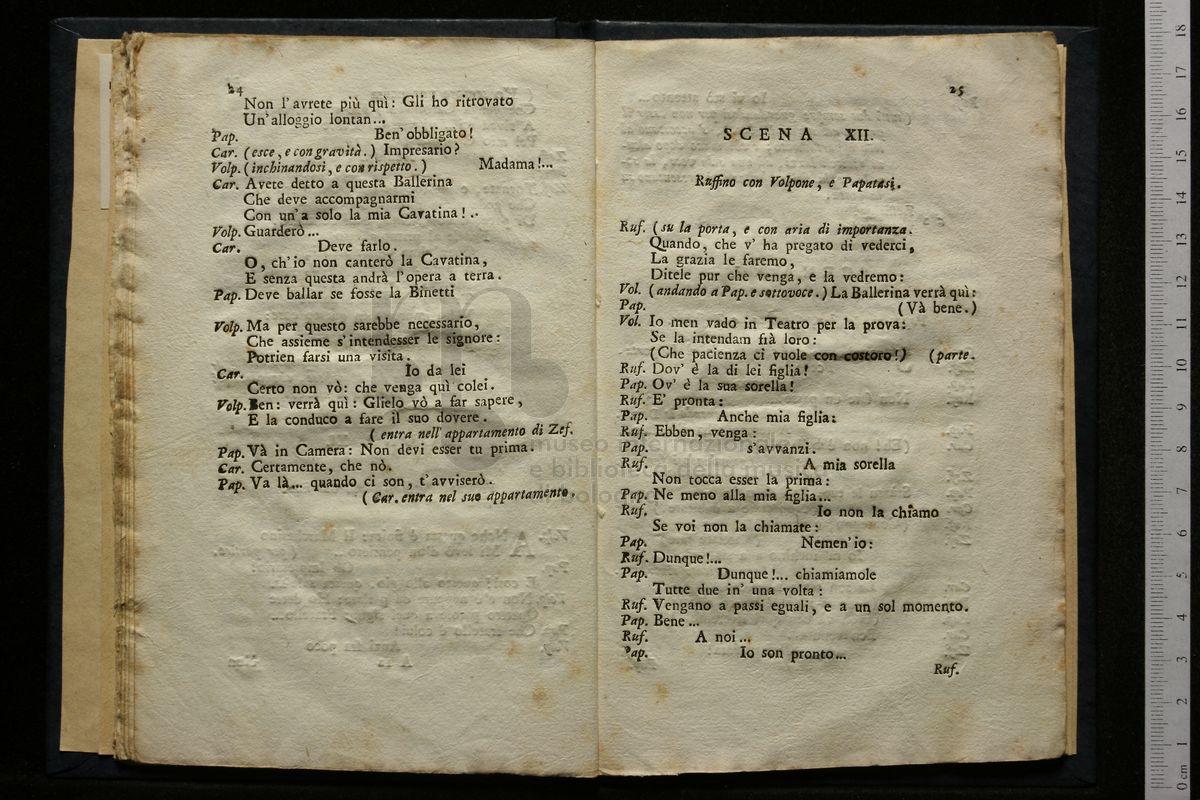 24
Non l'avrete più quì: Gli ho ritrovato
Un'alloggio lontan...
Pap. Ben'obbligato!
Car. (esce, e con gravità.) Impresario?
Volp. (inchinandosi, e con rispetto.) Madama!...
Car. Avete detto a questa Ballerina
Che deve accompagnarmi
Con un'a solo la mia Cavatina!..
Volp. Guarderò...
Car. Deve farlo.
O, ch'io non canterò la Cavatina,
E senza questa andrà l'opera a terra.
Pap. Deve ballar se fosse la Binetti
Volp. Ma per questo sarebbe necessario,
Che assieme s'intendesser le signore:
Potrien farsi una visita.
Car. Io da lei
Certo non vò: che venga quì colei.
Volp. Ben: verrà quì: Glielo vò a far sapere,
E la conduco a fare il suo dovere.
(entra nell'appartamento di Zef.
Pap. Và in Camera: Non devi esser tu prima.
Car. Certamente, che nò.
Pap. Va là... quando ci son, t'avviserò.
(Car. entra nel suo appartamento,
25
SCENA XII.
Ruffino con Volpone, e Papatasi.
Ruf. (su la porta, e con aria di importanza.
Quando, che v'ha pregato di vederci,
La grazia le faremo,
Ditele pur che venga, e la vedremo:
Vol. (andando a Pap. e sottovoce.) La Ballerina verrà quì:
Pap. (Và bene.)
Vol. Io men vado in Teatro per la prova:
Se la intendam fià loro:
(Che pacienza ci vuole con costoro!) (parte.
Ruf. Dov' è la di lei figlia!
Pap. Ov' è la sua sorella!
Ruf. E' pronta:
Pap. Anche mia figlia:
Ruf. Ebben, venga:
Pap. s'avvanzi.
Ruf. A mia sorella
Non tocca esser la prima:
Pap. Ne meno alla mia figlia...
Ruf. Io non la chiamo
Se voi non la chiamate:
Pap. Nemen'io:
Ruf. Dunque!...
Pap. Dunque!... chiamiamole
Tutte due in' una volta:
Ruf. Vengano a passi eguali, e a un sol momento.
Pap. Bene...
Ruf. A noi...
Pap. Io son pronto...
Ruf.
museo internazionale
e biblioteca della musica
bologna
0 cm 1 2 3 4 5 6 7 8 9 10 11 12 13 14 15 16 17 18